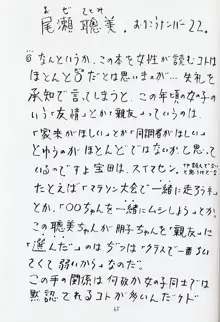 おぜ ととみ
尾瀬 聰美. おりこうナンバー22.
なんというか、この本を女性が読むコトは
ほとんど だとは思いますが… 失礼を
承知で言ってしまうと、この年頃の女の子の
いう「友情」とか「親友」っていうのは
「家来がほしい」とか「同調者がほしい」
とゆうのがほとんどではないかと思って
いるのですよ宝田は、スイマセン。
たとえば「マラソン大会で一緒に走ろうネ」
とか、「○○ちゃんを一緒にムシしよう」とか。
この聰美ちゃんが朋子ちゃんを「親友」に
「選んだ」のはじつは「クラスで一番
くて弱いから」なのだ。
この手の関係は何故か女の子同士では
黙認されるコトが多いんだケド
65